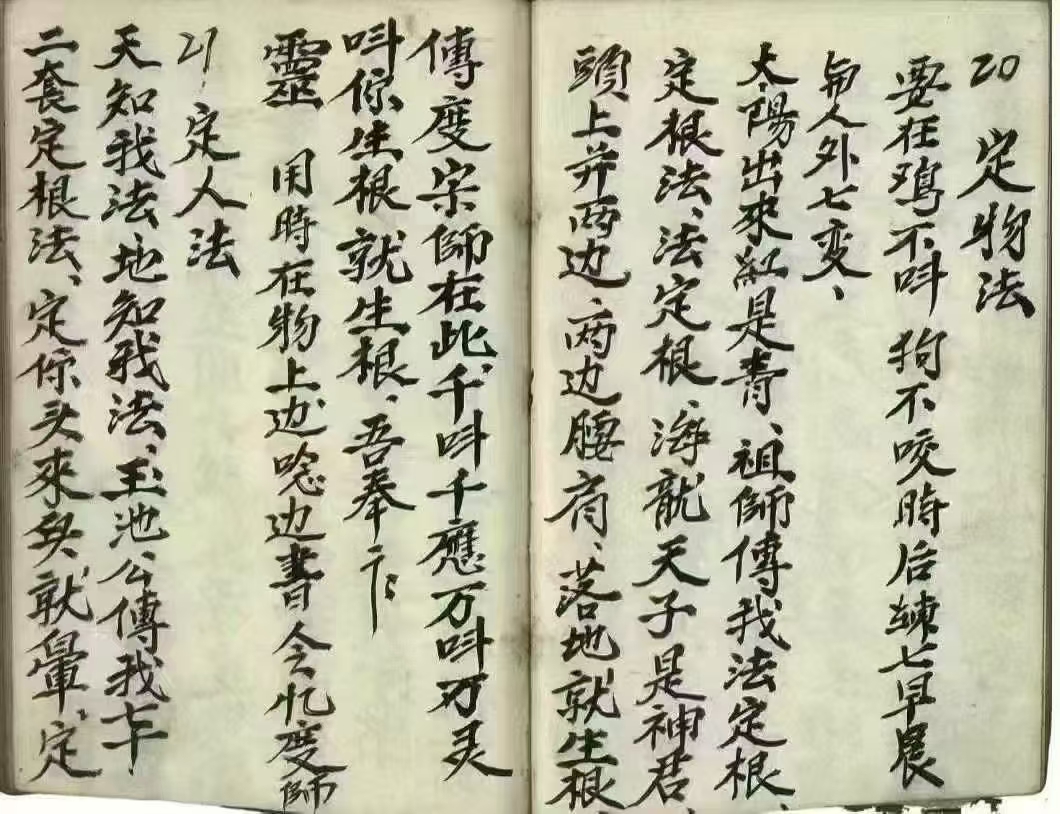 20 定物法
要在鸡不呌 狗不咬時后練七早晨
另人外七变、
太陽出來紅是青、祖師傳我法定根、
定根法、法定根、海龍天子是神君、
頭上并两边、两边腰肩、落地就生根
傳度宗師在此、千呌千應万呌万灵
呌你生根就生根、吾奉
靈 用時在物上边、唸边書令忆度師
21 定人法
天知我法、地知我法、玉池公傳我七十
二套定根法、定你头來要、就暈、定